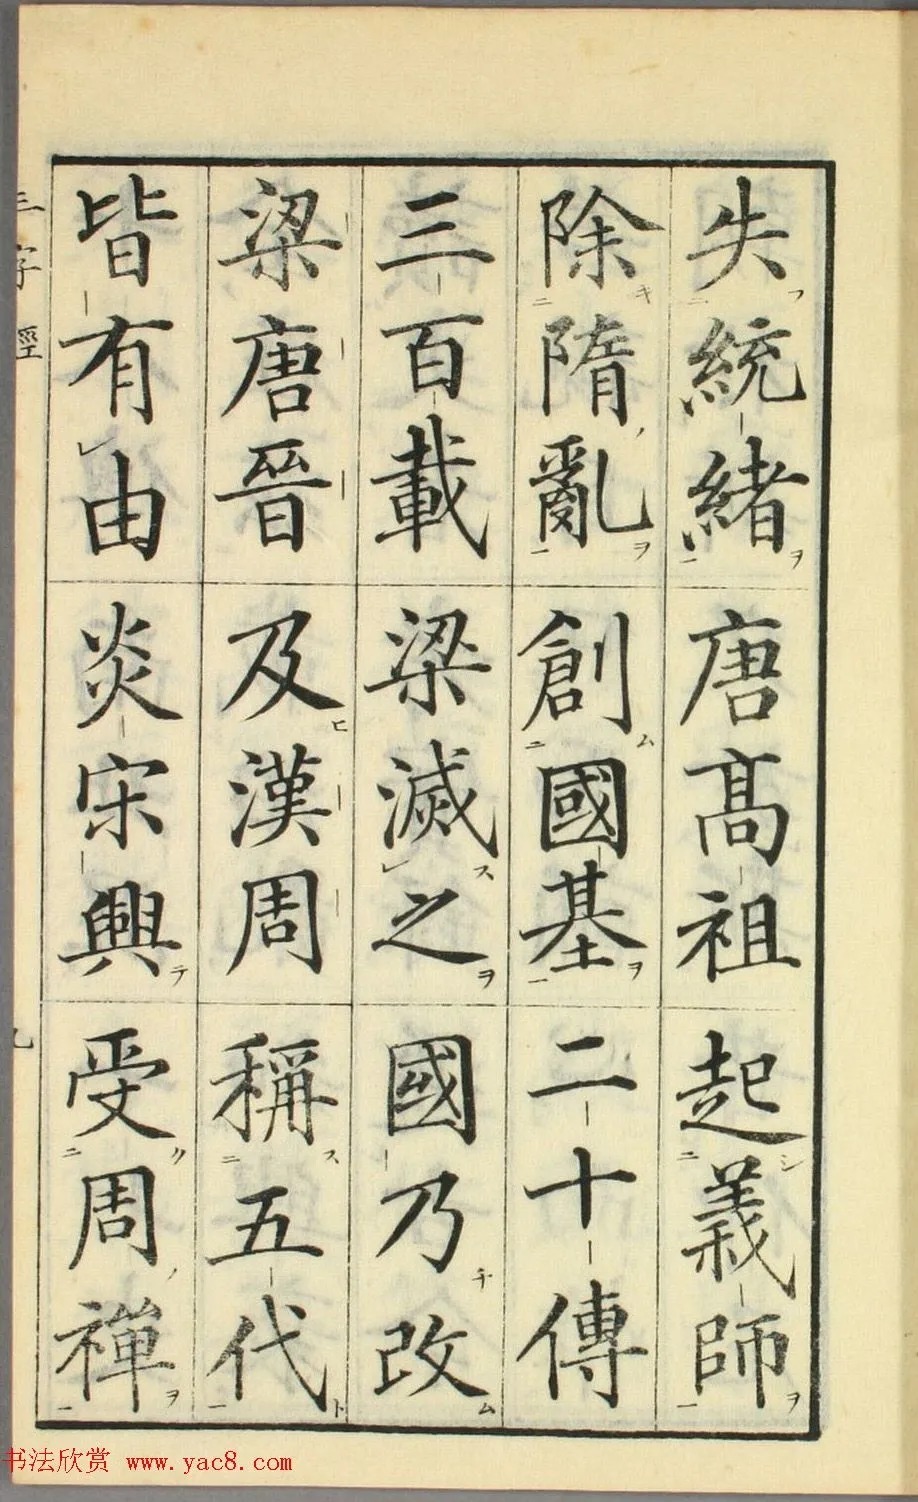 失統緒唐髙祖起義師
除隋亂創國基二十傳
三百載梁滅之國乃改
梁唐晉及漢周稱五代
皆有由炎宋興受周禪
三字經
九
书法欣赏 www.yac8.com